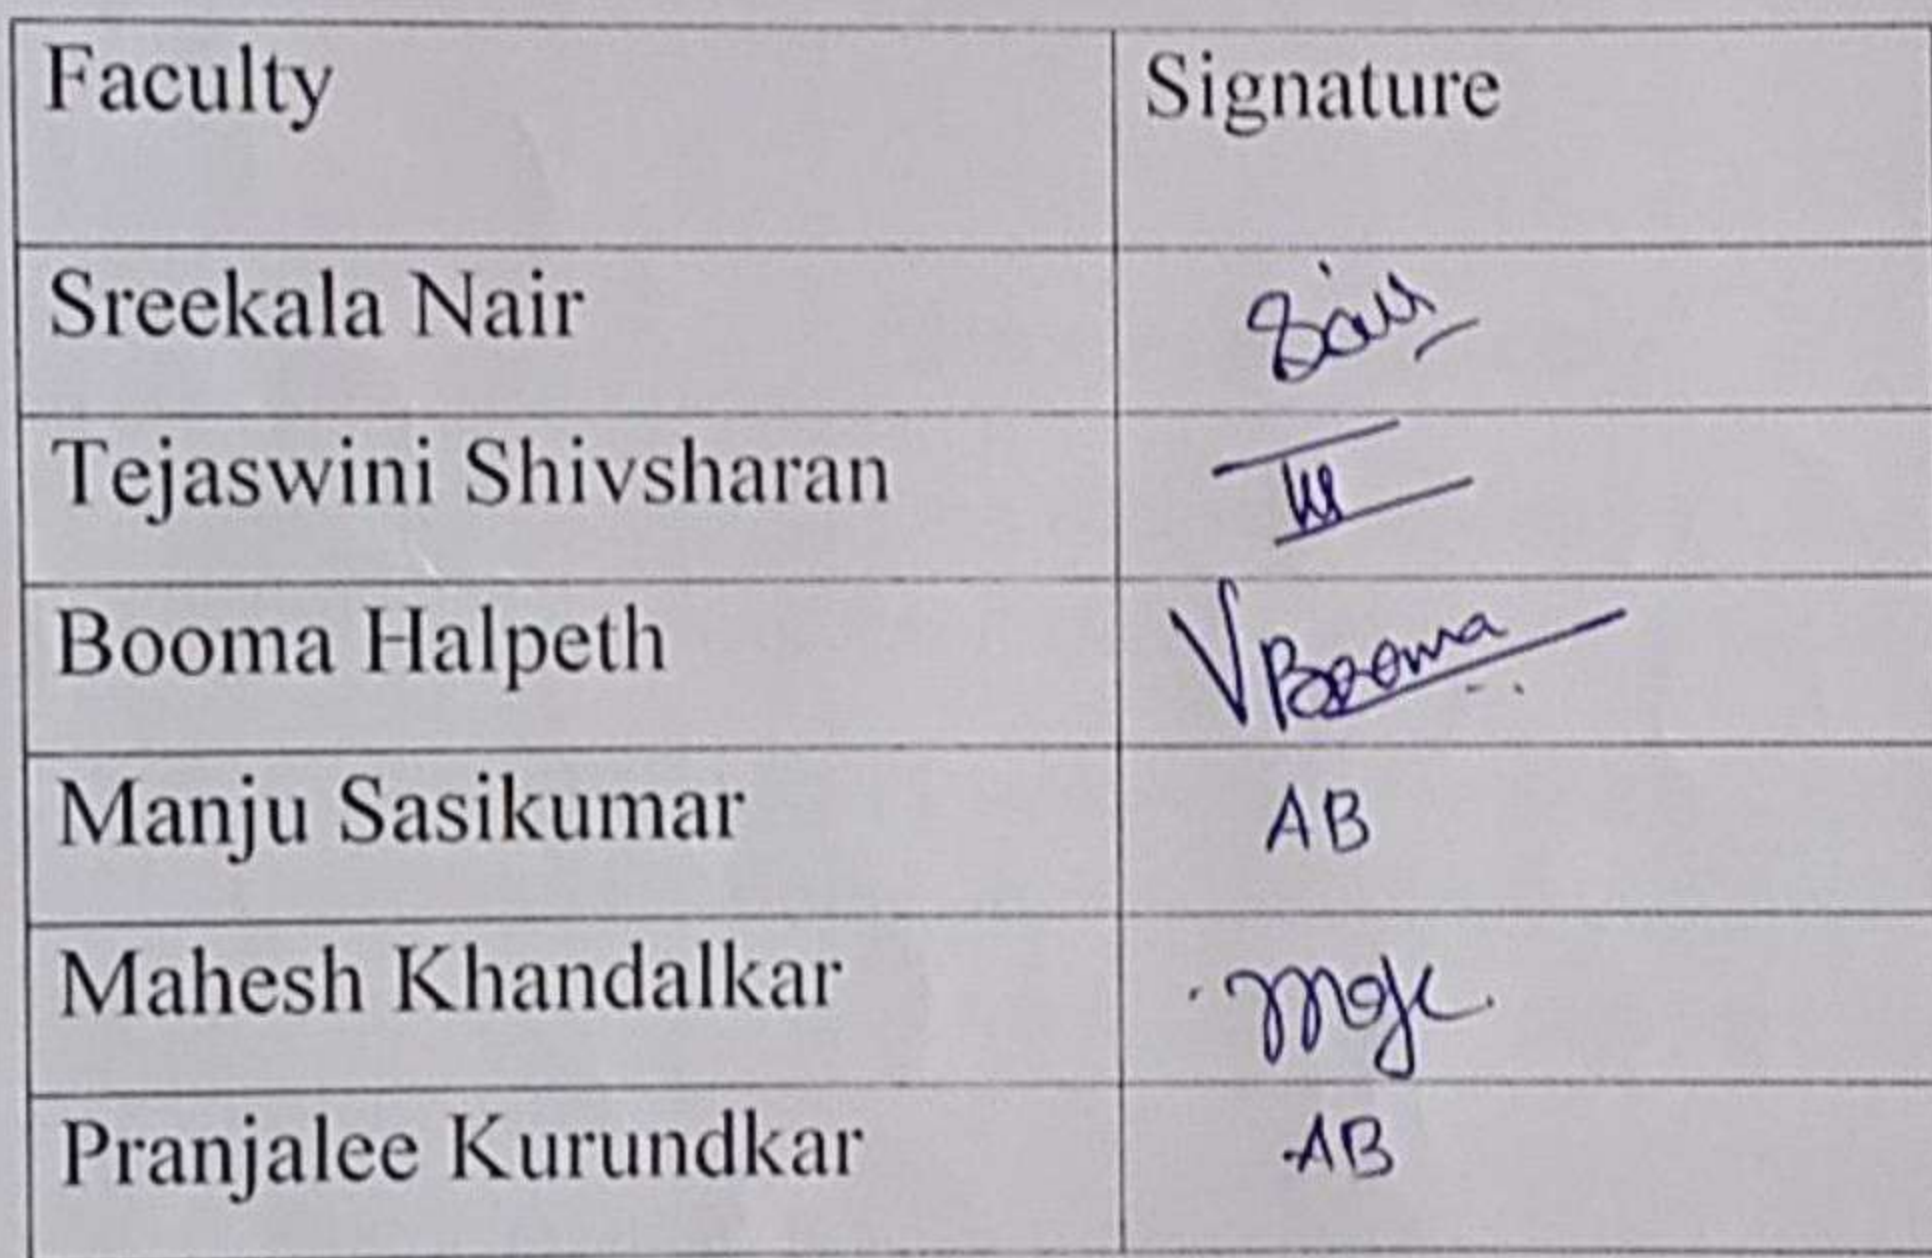 Faculty Signature
Sreekala Nair
Tejaswini Shivsharan
Booma Halpeth VBooma
Manju Sasikumar AB
Mahesh Khandalkar
Pranjalee Kurundkar AB